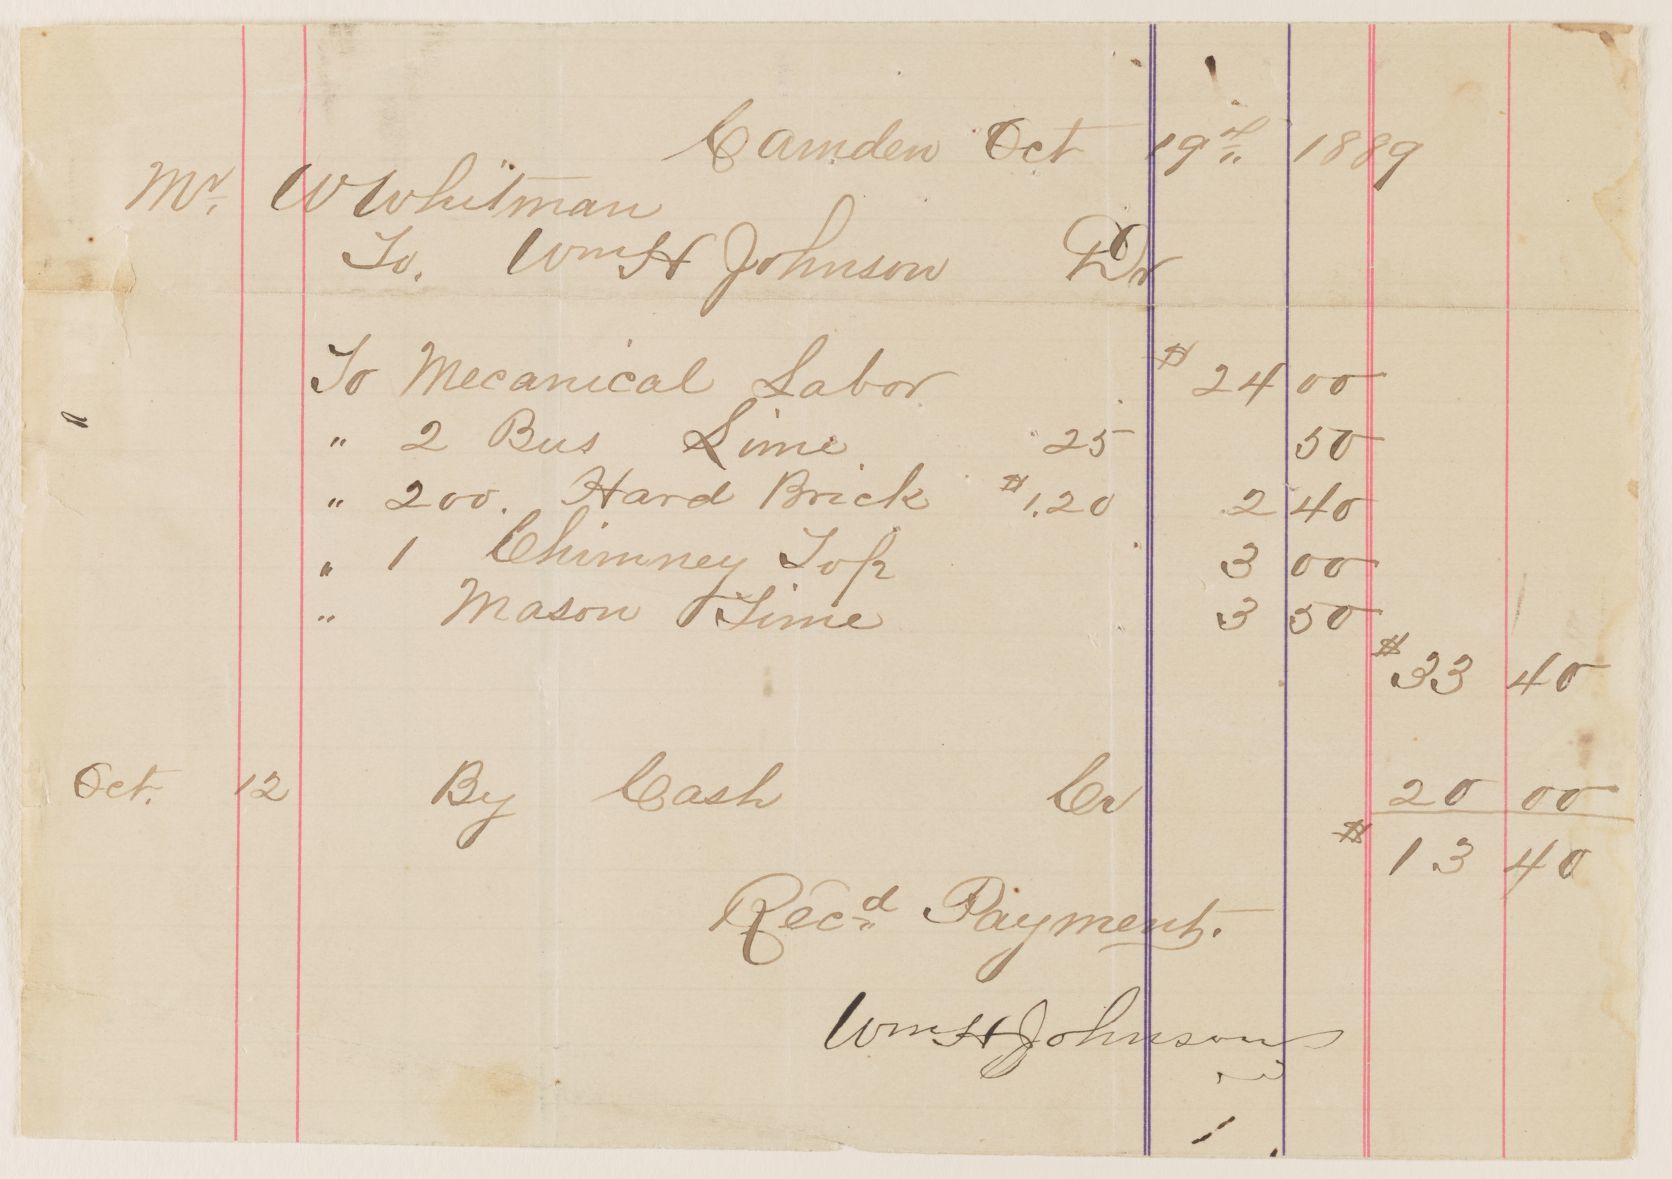 Camden Oct 19th 1889
Mr. W Whitman
To. Wm H Johnson Dr
To Mecanical Labor $ 24 00
" 2 Bus Lime 25 50
" 200. Hard Brick $1.20 2 40
" 1 Chimney Top 3 00
" Mason Time 3 50
$33 40
Oct. 12 By Cash Cr 20 00
$ 13 40
Recd Payment.
Wm H Johnson